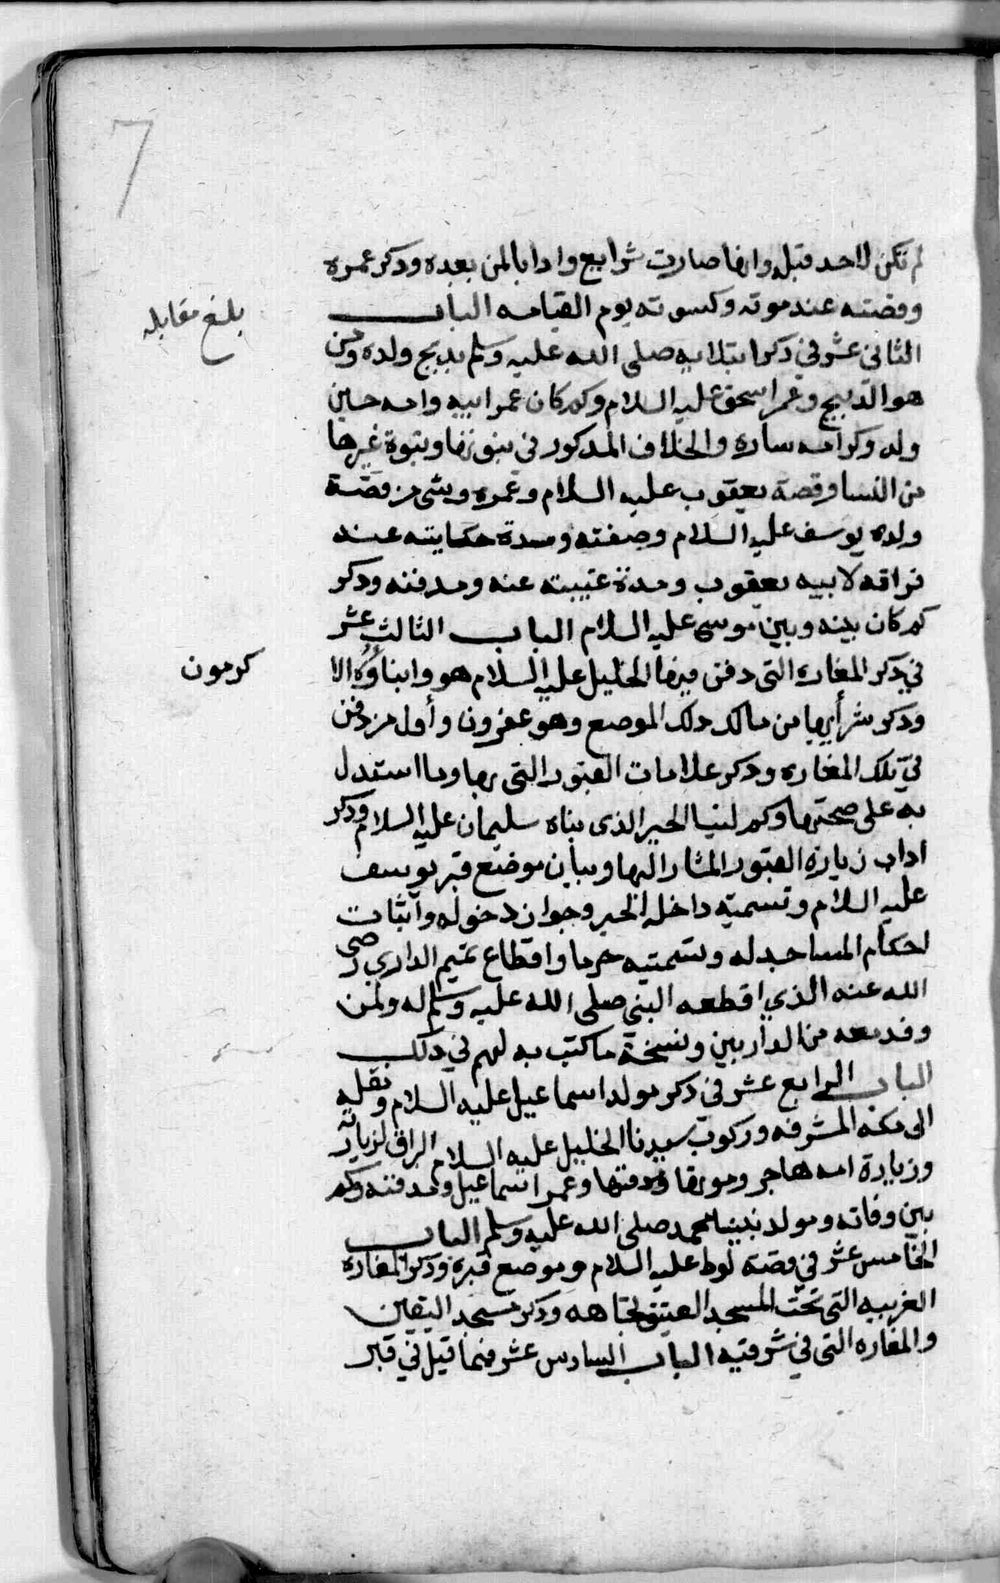 7
لم تكن لاحد قبله وانها صارت شرايع وادابا لمن بعده وذكر عمره
وقصته عند موته وكسوته يوم القيامه الباب
بلغ مقابله
الثانى عشر في ذكر ابتلايه صلى الله عليه وسلم بذبح ولده ومن
هو الذبيح وعمر اسحق عليه السلام وكم كان عمر ابيه وامه حين
ولد وذكر امه ساره والخلاف المذكور فى نبوتها ونبوة غيرها
من النسا وقصة يعقوب عليه السلام وعمره وشى من قصة
ولده يوسف عليه السلام وصفته ومدة حكايته عند
فراقه لابيه يعقوب ومدة غيبته عنه ومدفنه وذكر
كم كان بينه وبين موسى عليه السلام الباب الثالث عشر
في ذكر المغاره التى دفن فيها الخليل عليه السلام هو وابناؤه الا
كرمون
وذكر شرأيها من مالك ذلك الموضع وهو عفرون وأول من دفن
في تلك المغاره وذكر علامات القبور التى بها وما استدل
به على صحتها وكم لبنا الحير الذى بناه سليمان عليه السلام وذكر
اداب زيارة القبور المشار اليها وبيان موضع قبر يوسف
عليه السلام وتسمية داخله الحير وجواز دخوله واثبات
احكام المساجد له وتسميته حرما واقطاع تميم الداري رضى
الله عنه الذي اقطعه النبي صلى الله عليه وسلم له ولمن
وفد معه من الداريين ونسخة ما كتب به لهم في ذلك
الباب الرابع عشر فى ذكر مولد اسماعيل عليه السلام ونقله
الى مكه المشرفه وركوب سيدنا الخليل عليه السلام البراق لزيارته
وزيارة امه هاجر وموتها ودفنها وعمر اسماعيل ومدفنه وكم
بين وفاته ومولد نبينا محمد صلى الله عليه وسلم الباب
الخامس عشر في قصة لوط عليه السلام وموضع قبره وذكر المغاره
الغربيه التى تحت المسجد العتيق تجاهه وذكر مسجد اليقين
والمغاره التى في شرقيه الباب السادس عشر فيما قيل في قبر